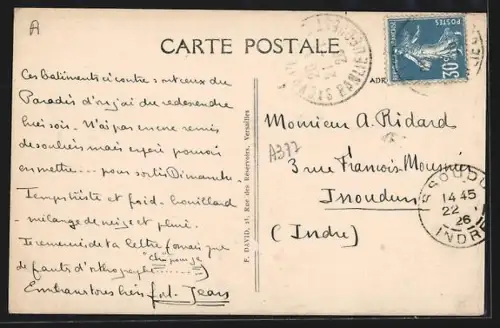 A
CARTE POSTALE
ADR
POSTES
30c
Ces batiments ci contre sont ceux du
Paradis d'où j'ai du redescendre
hier soir. N'ai pas encore remis
de souliers mais espère pouvoir
en mettre ... pour sortir Dimanche,
Temps triste et froid. brouillard
mélange de neige et pluie.
Je remercie de ta lettre
de fautes d'orthographe ........)
Embrasse tous bien fort. Jean
P. DAVID, 21, Rue des Réservoirs, Versailles
Monsieur A. Ridard
A377
3 rue François Meusnier
Issoudun
(Indre)
ISSOUDUN
14 45
22
26
INDRE